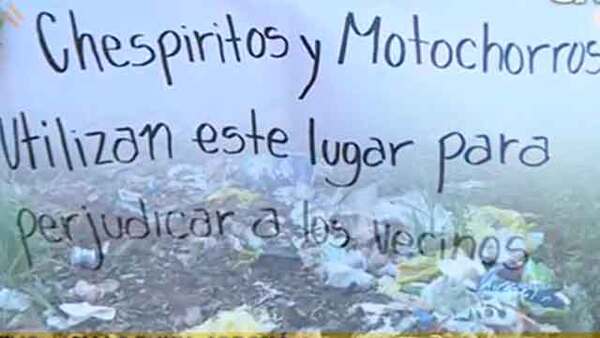 Chespiritos y Motochorros
Utilizan este lugar para
perjudicar a los vecinos